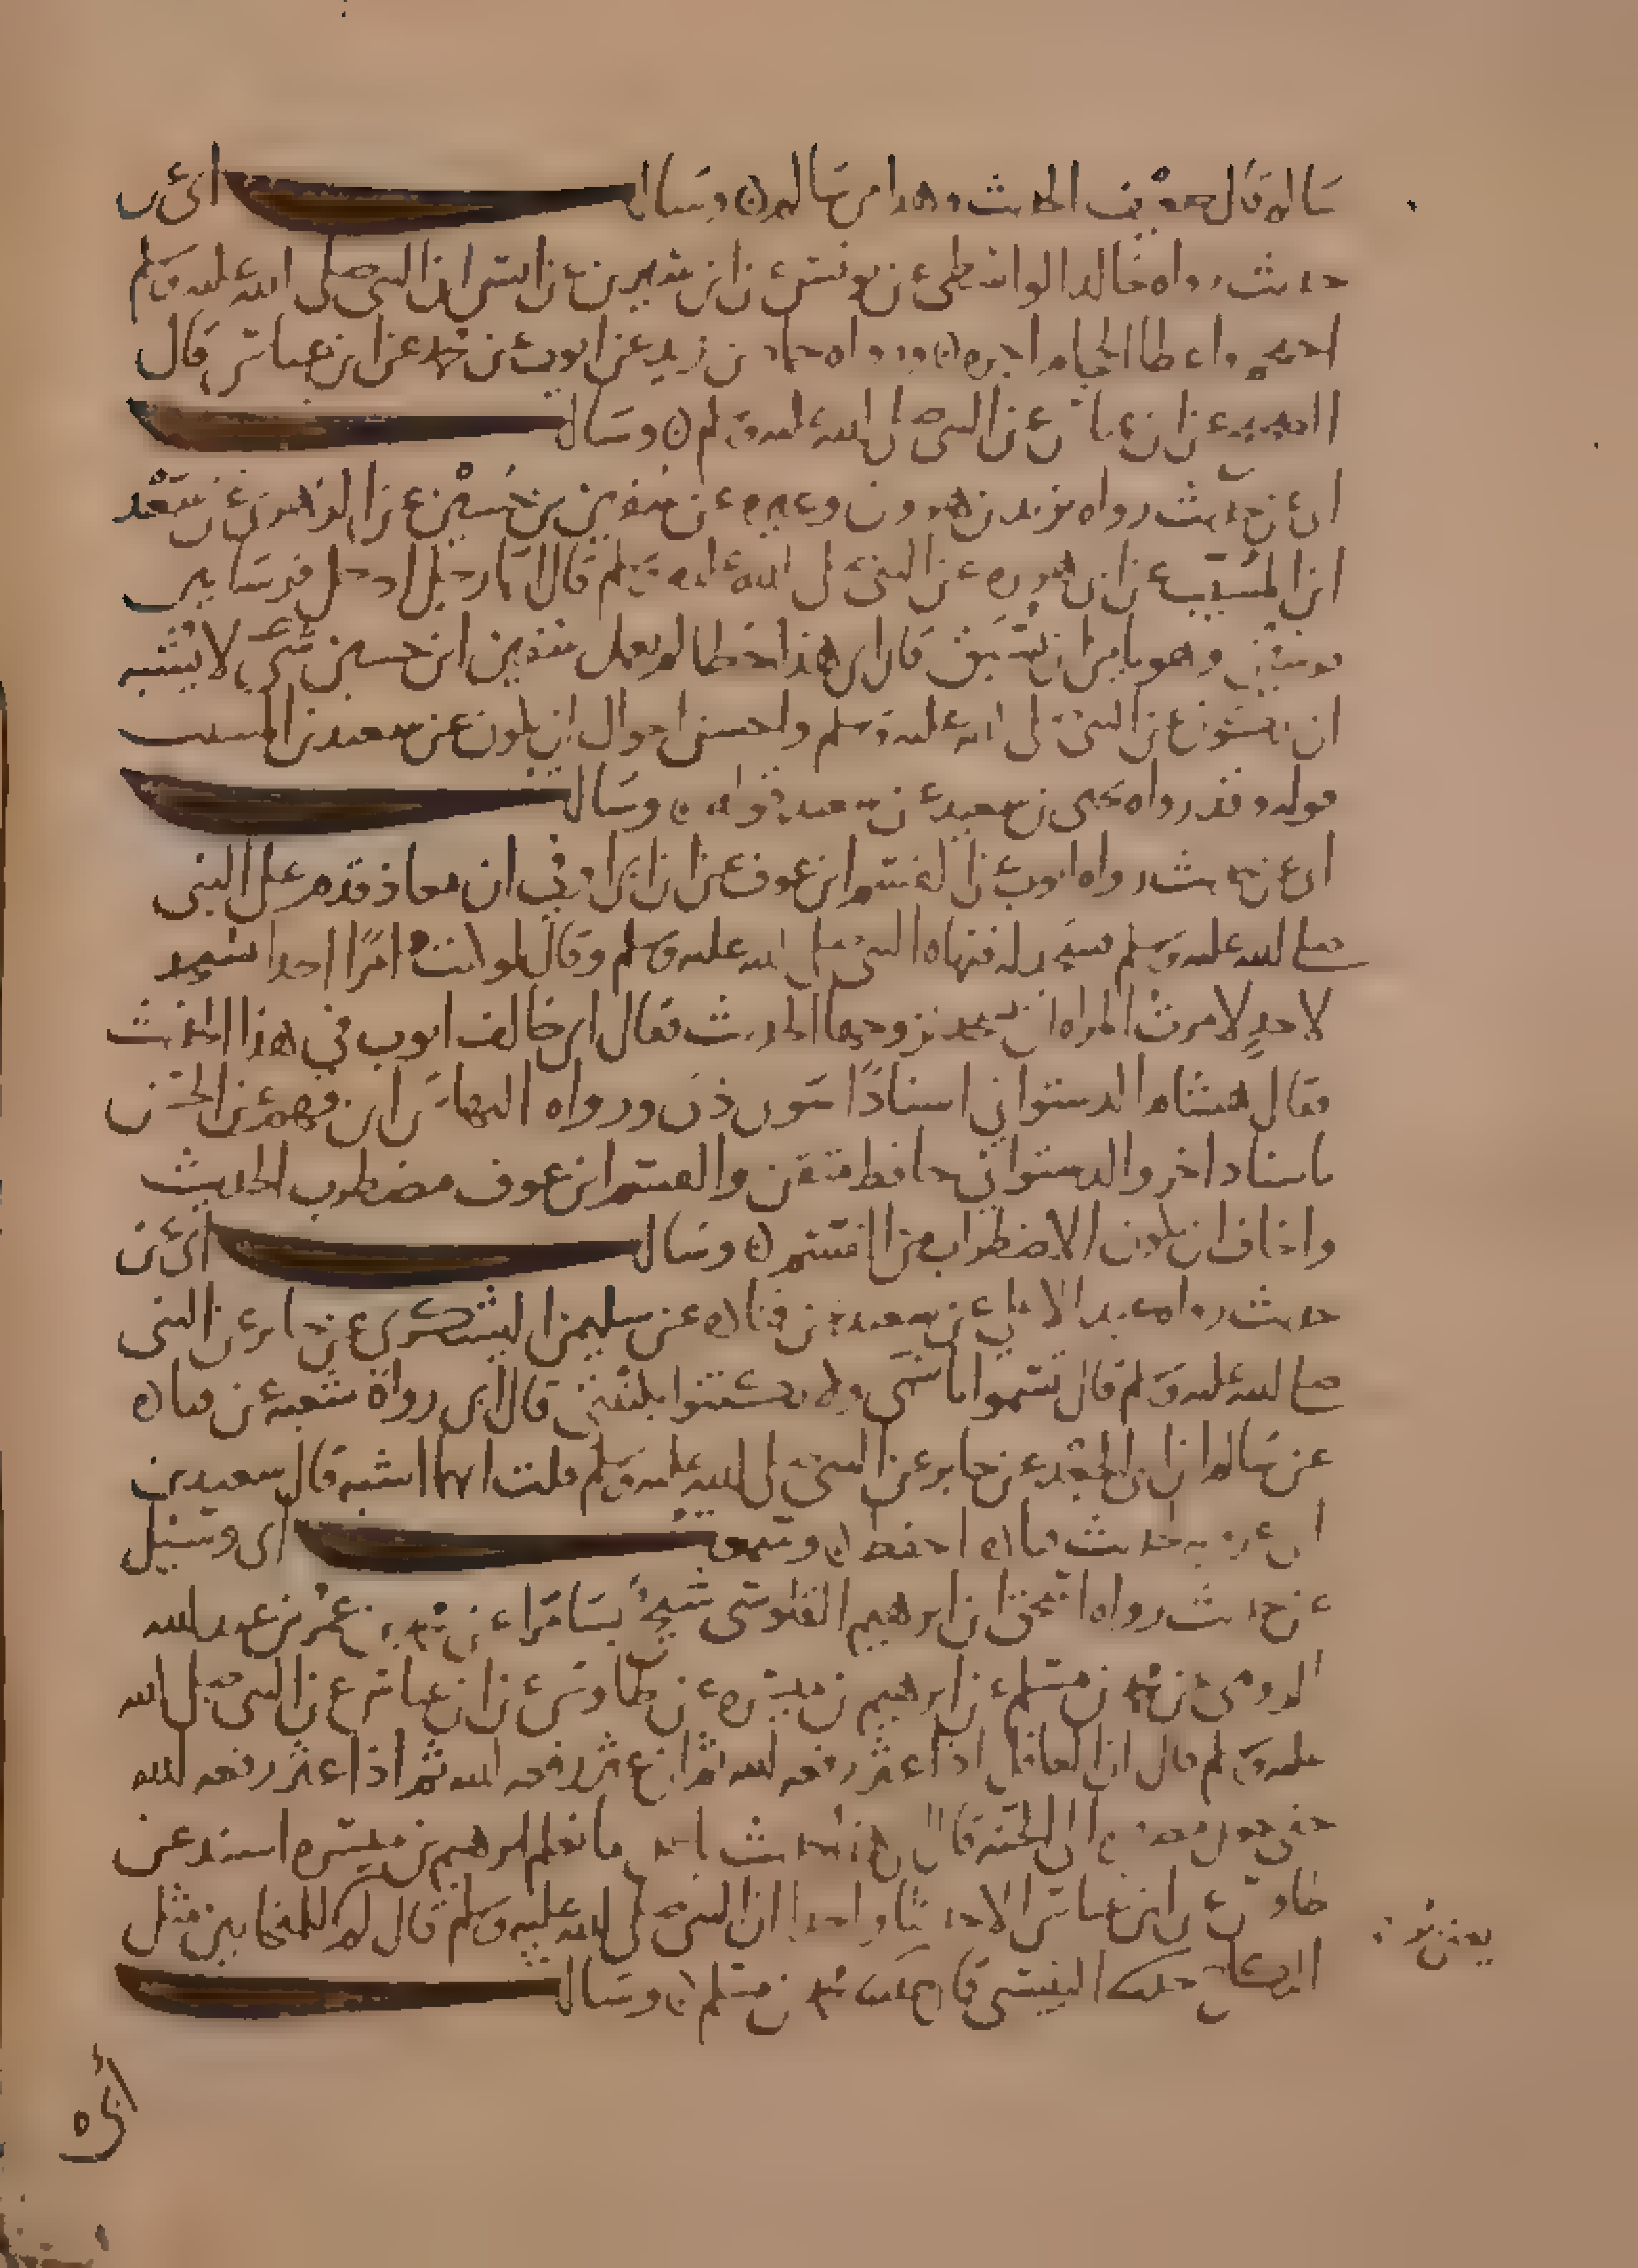 سالم قال ضعيف الحديث وهذا من سالم ن وسالت ابي عن
حديث رواه خالد الواسطي عن يونس عن ابن سيرين عن انس ان النبي صلى الله عليه وسلم
احتجم واعطا الحجام اجره ن ورواه حماد بن زيد عن ايوب عن محمد عن ابن عباس قال
الصحيح عن ابن عباس عن النبي صلى الله عليه وسلم ن وسالت
ابي عن حديث رواه يزيد بن هرون وغيره عن سفين بن حسين عن الزهري عن سعيد
ابن المسيب عن ابي هريره عن النبي صلى الله عليه وسلم قال ايما رجل ادخل فرسا بين
فرسين وهو يامن ان يسبق قال ابي هذا خطا لم يعمل سفين ابن حسين شي لا يشبه
ان يكون عن النبي صلى الله عليه وسلم واحسن احوال ان يكون عن سعيد بن المسيب
قوله وقد رواه يحيى بن سعيد عن سعيد قوله ن وسالت
ابي عن حديث رواه ايوب عن القسم ابن عوف عن ابن ابي اوفى ان معاذ قدم على النبي
صلى الله عليه وسلم فسجد له فنهاه النبي صلى الله عليه وسلم وقال لو كنت امرًا احدا يسجد
لاحدٍ لامرت المراه ان تسجد لزوجها الحديث فقال ابي خالف ايوب في هذا الحديث
فقال هشام الدستواني اسنادًا سوى ذى ورواه النهاس ابن قهم عن القسم بن
باسناد اخر والدستواني حافظ متقن والقسم ابن عوف مضطرب الحديث
واخاف ان يكون الاضطراب من القسم ن وسالت ابي عن
حديث رواه عبد الاعلى عن سعيد عن قتاده عن سليمن اليشكري عن جابر عن النبي
صلى الله عليه وسلم قال تسموا باسمي ولا تكتنوا بكنيتي قال ابي رواه شعبه عن قتاده
عن سالم ابن ابي الجعد عن جابر عن النبي صلى الله عليه وسلم قلت ايهما اشبه قال سعيد بن
ابي عروبه لحديث قتاده احفظ ن وسمعت ابي وسئل
عن حديث رواه اسحق ابن ابرهيم القلوسي شيخٌ بسامرا عن محمد بن عمر بن عبد الله
الرومي عن محمد بن مسلم عن ابرهيم بن ميسره عن طاوس عن ابن عباس عن النبي صلى الله
عليه وسلم قال ان العاقل اذا عثر رفعه الله ثم ان عثر رفعه الله ثم اذا عثر رفعه الله
حتى يجعل مصيره الى الجنه قال ابي هذا حديث باطل ما نعلم ابرهيم بن ميسره اسند عن
طاوس عن ابن عباس الا حديثا واحدا ان النبي صلى الله عليه وسلم قال لم ير للمتحابين مثل
النكاح
محمد بن مسلم ن وسالت